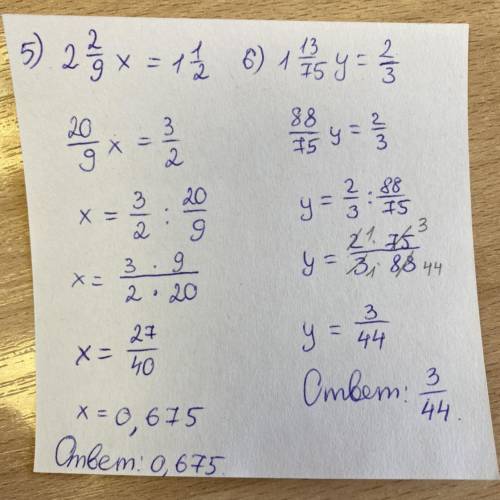 5) 2 2/9 x = 1 1/2
20/9 x = 3/2
x = 3/2 : 20/9
x = 3 · 9 / 2 · 20
x = 27/40
x = 0,675
Ответ: 0,675.
6) 1 13/75 y = 2/3
88/75 y = 2/3
y = 2/3 : 88/75
y = 2 1 · 75 3 / 3 1 · 88 44
y = 3/44
Ответ: 3/44.